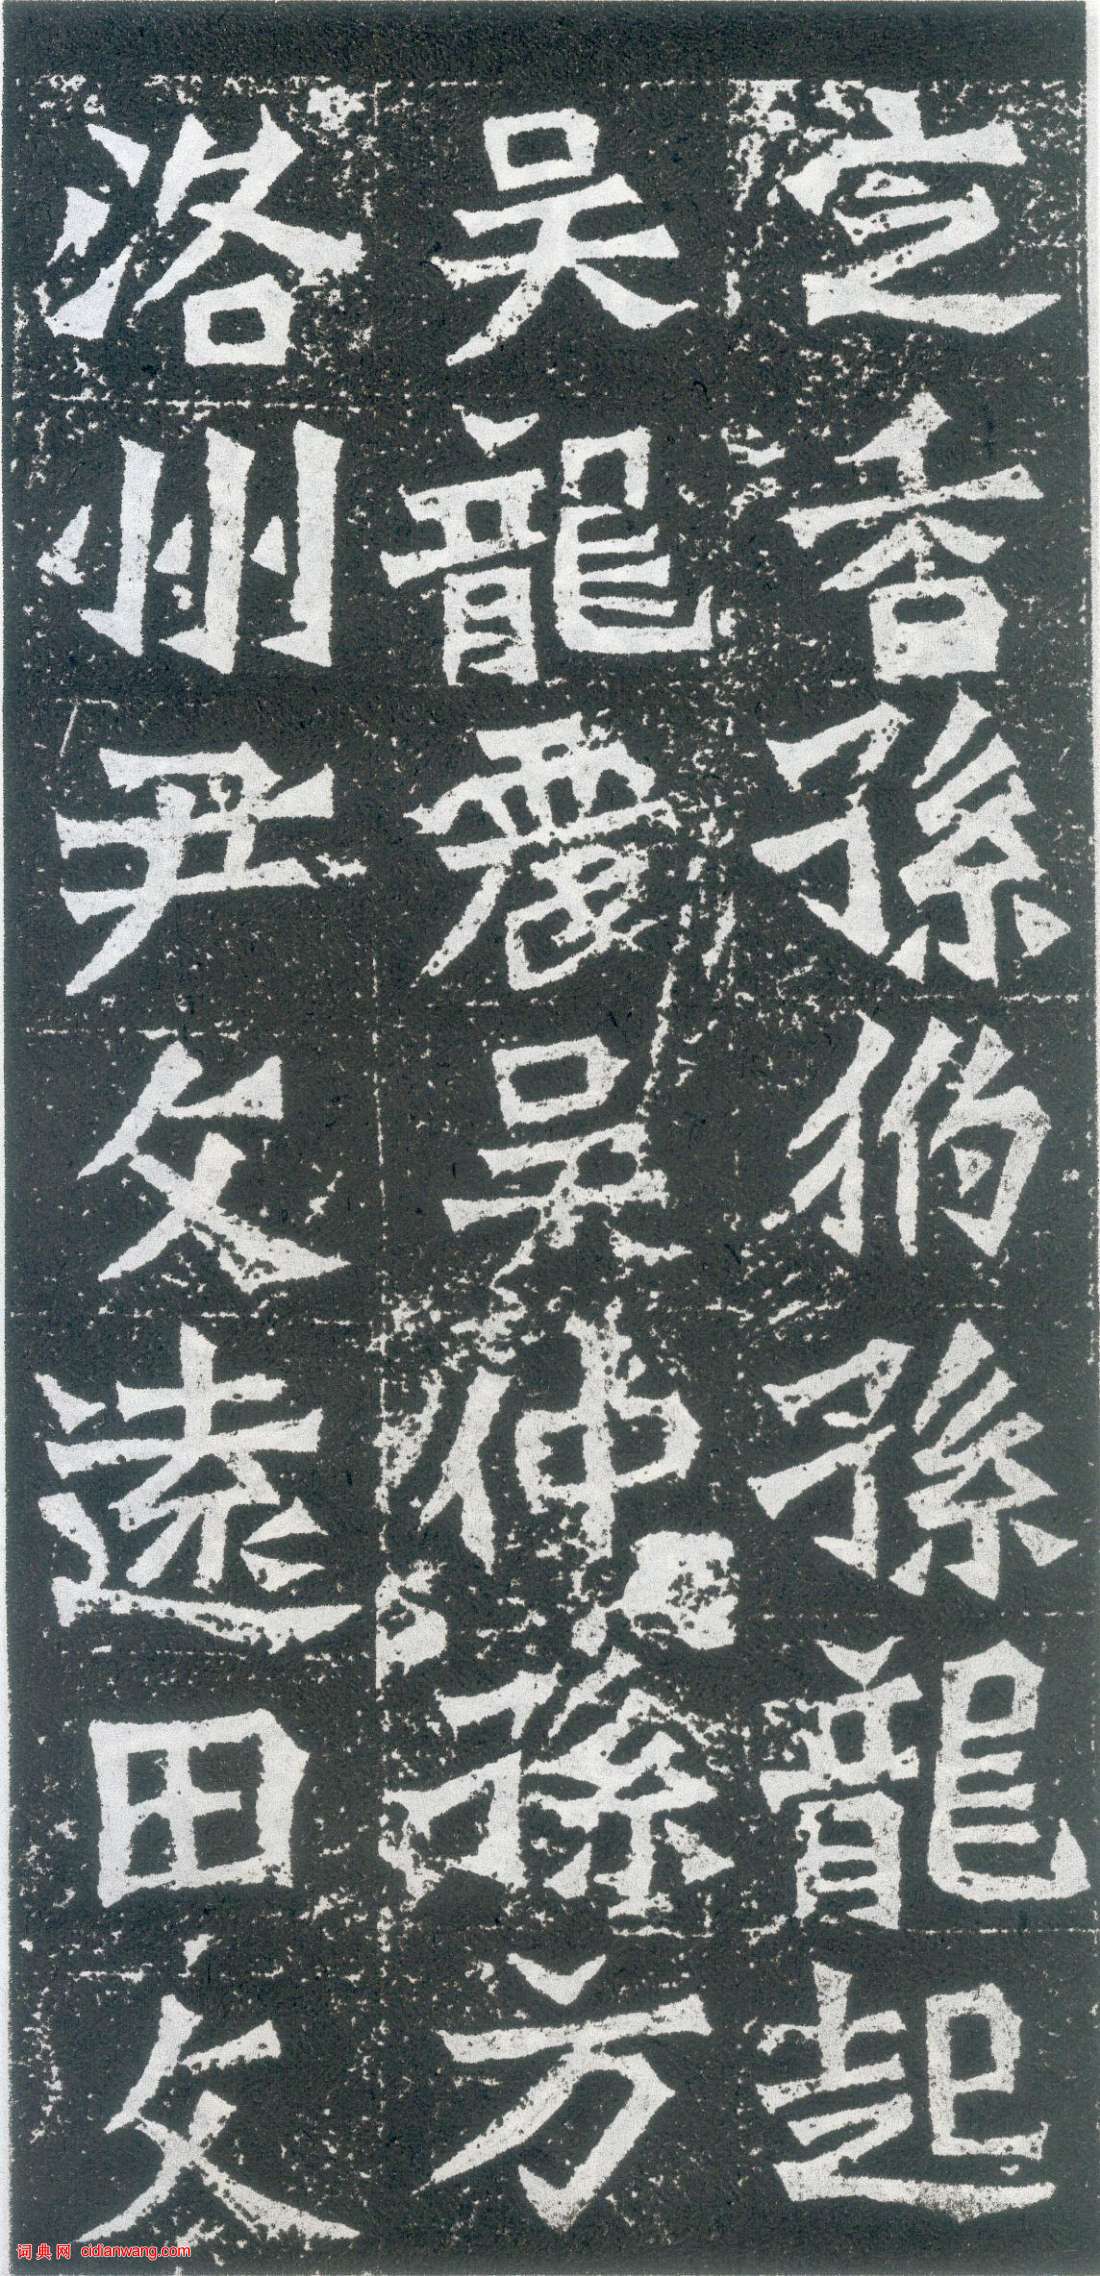 定孫孫龍起
吳龍震吳仲孫方
洛州尹文遠田文
词典网 cidianwang.com